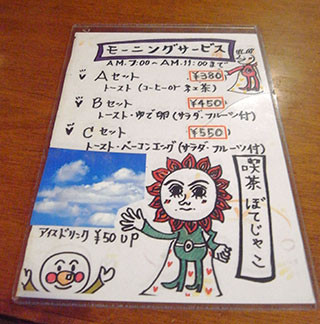 モーニングサービス
A.M. 7:00〜A.M. 11:00まで
Aセット ¥380
トースト (コーヒー or 紅茶)
Bセット ¥450
トースト・ゆで卵 (サラダ・フルーツ付)
Cセット ¥550
トースト・ベーコンエッグ (サラダ・フルーツ付)
喫茶 ぼてじゃこ
アイスドリンク ¥50 UP